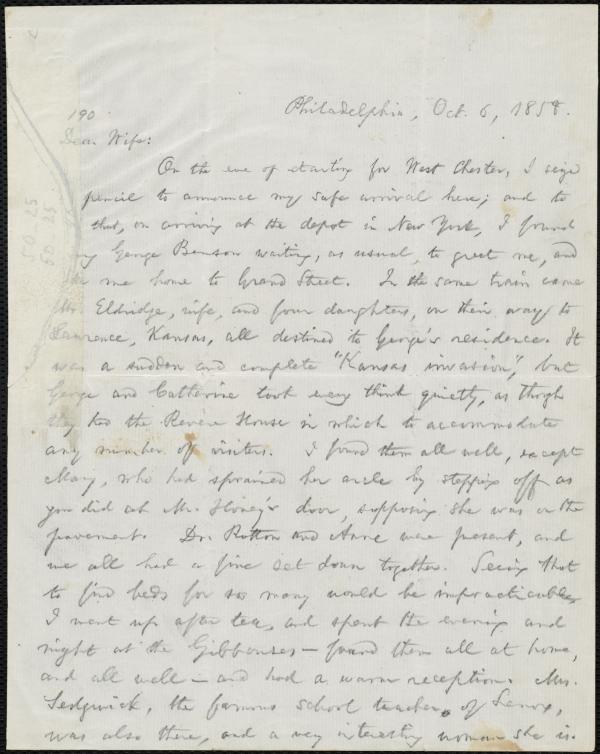 Philadelphia, Oct. 6, 1858.
190
Dear Wife:
On the eve of starting for West Chester, I seize
pencil to announce my safe arrival here; and to
that, on arriving at the depot in New York, I found
George Benson waiting, as usual, to greet me, and
me home to Grand Street. In the same train came
Mr. Eldridge, wife, and four daughters, on their way to
Lawrence, Kansas, all destined to George's residence. It
was a sudden and complete "Kansas invasion," but
George and Catherine took every think quietly, as though
they had the Revere House in which to accommodate
any number of visitors. I found them all well, except
Mary, who had sprained her ancle by stepping off as
you did at Mr. door, supposing she was on the
pavement. Dr. Rotton and Anne were present, and
we all had a fine set down together. Seeing that
to find beds for so many would be impracticable,
I went up after tea, and spent the evening and
night at the Gibbonses — found them all at home,
and all well — and had a warm reception. Mrs.
Sedgwick, the famous school teacher of Lenox,
was also there, and a very interesting woman she is.
50-25
50-25